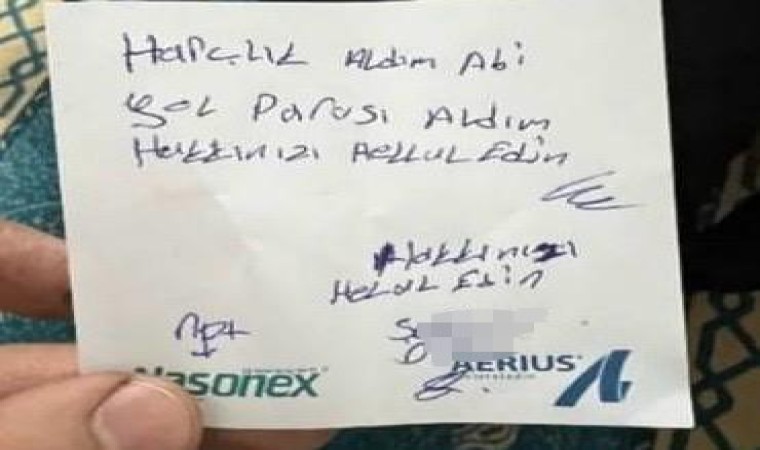 Harçlık Aldım Abi
Yol Parası Aldım
Hakkınızı Hellul Edin
Hakkınızı
Helal Edin
Not
Nasonex
AERIUS